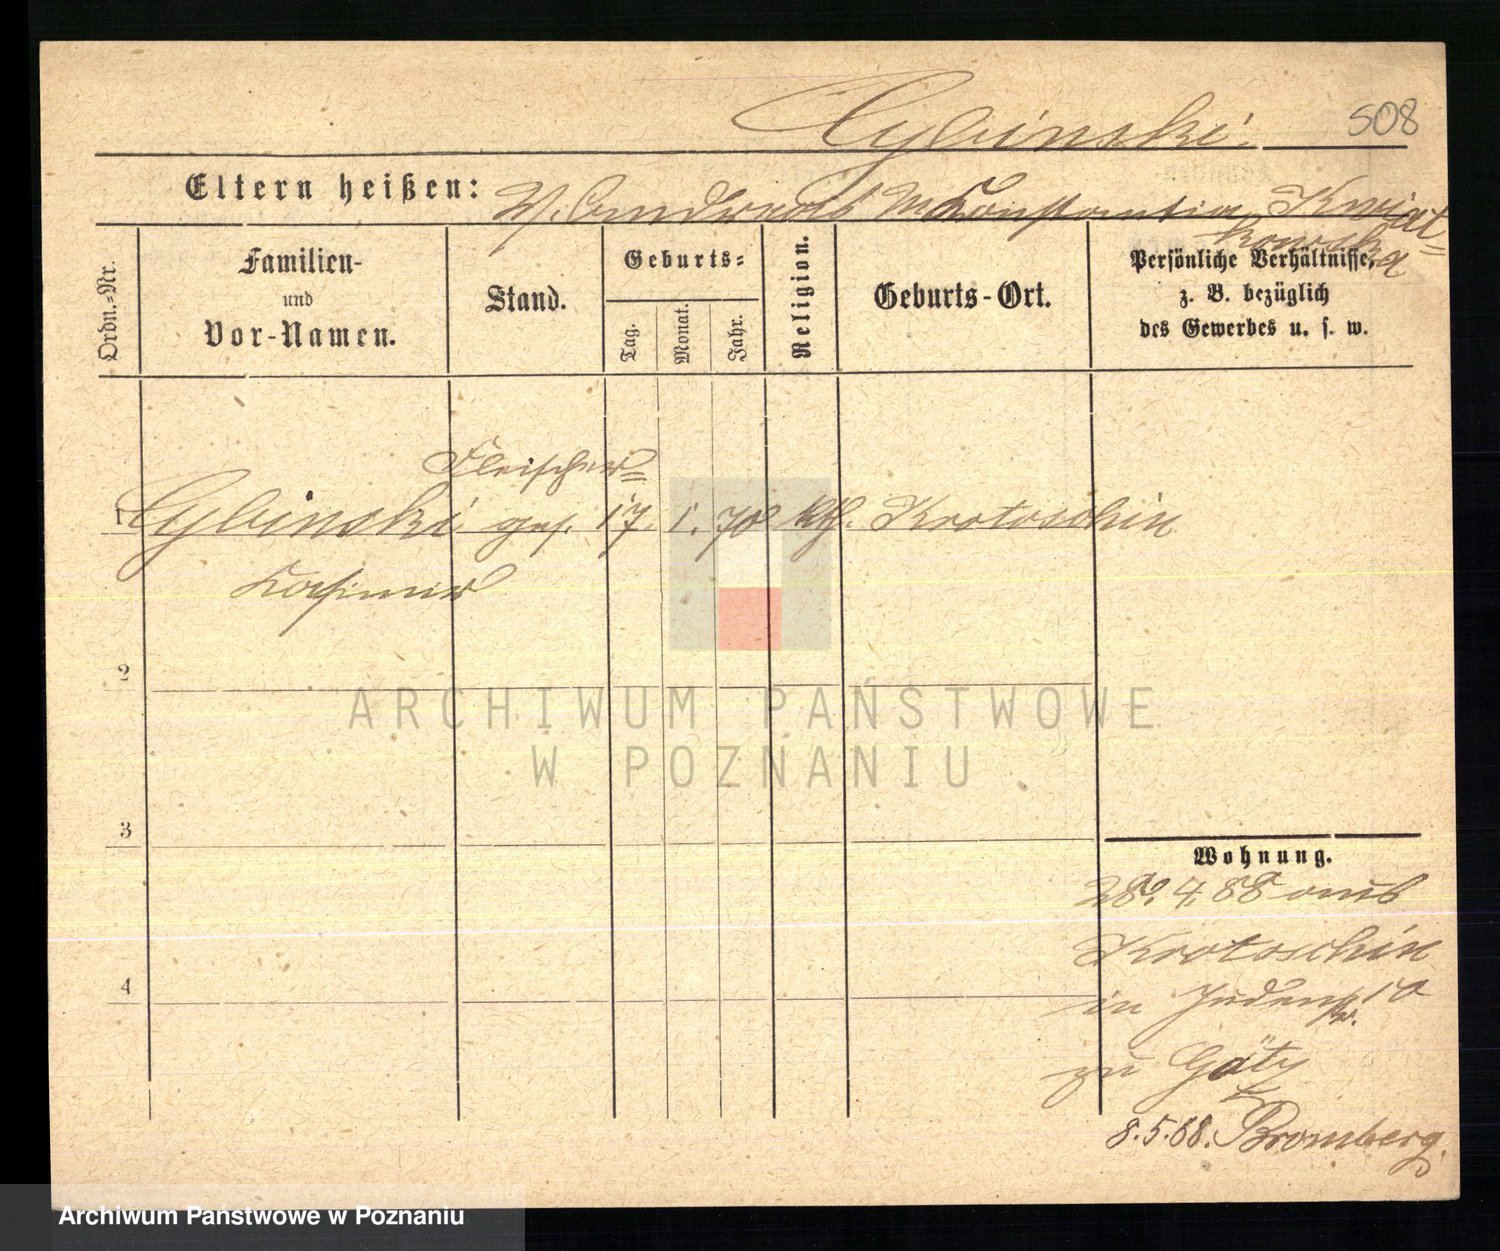 Cybinski.
508
Eltern heißen: V. Andreas M. Konstantia Kwiat=
kowska
Ordn.=Nr.
Familien-
und
Vor-Namen.
Stand.
Geburts=
Tag.
Monat.
Jahr.
Religion.
Geburts-Ort.
Persönliche Verhältnisse,
z. B. bezüglich
des Gewerbes u. s. w.
Fleischer=
1 Cybinski ges. 17 1. 70 kth. Krotoschin
Kasimir
2
3
4
Wohnung.
28. 4. 88 aus
Krotoschin
in Judenstr. 10
zu
8.5.88. Bromberg.
ARCHIWUM PAŃSTWOWE
W POZNANIU
Archiwum Państwowe w Poznaniu